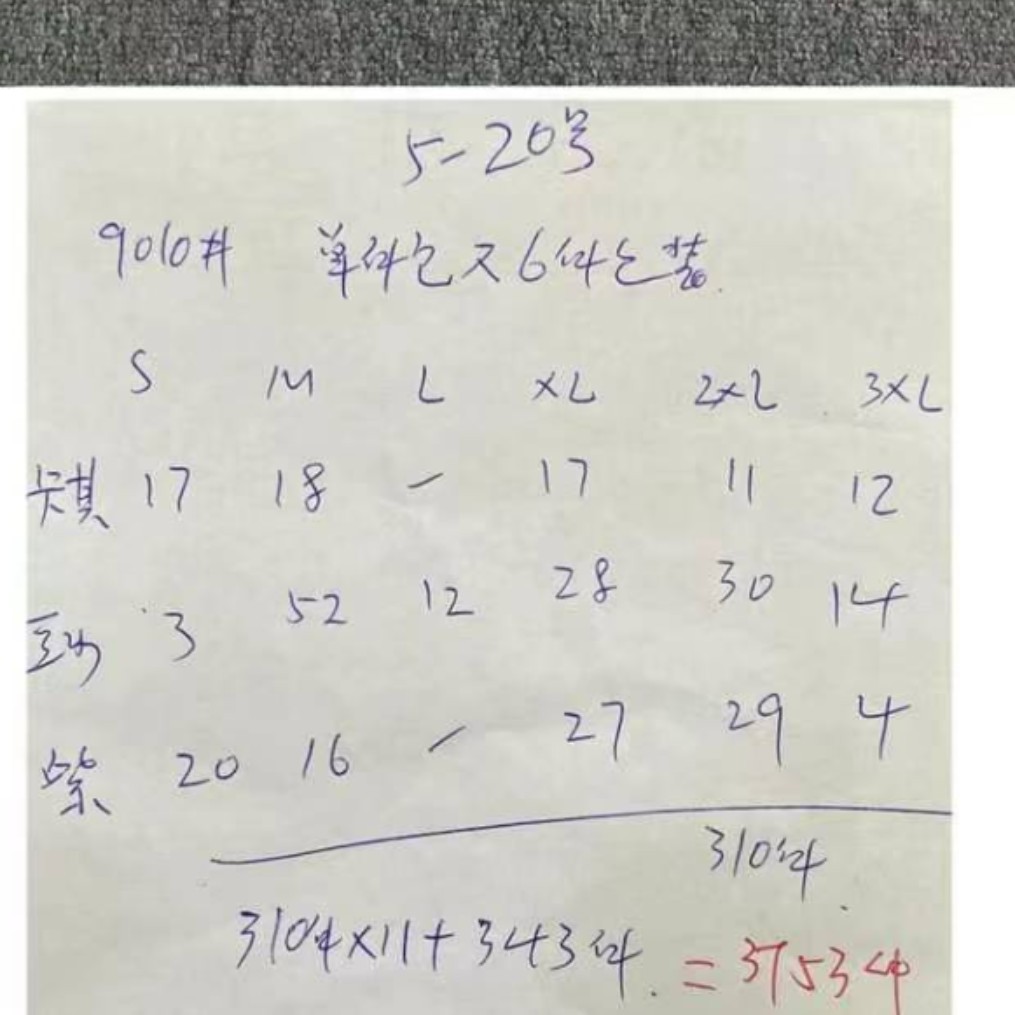 5-20号
9010井 单件包又6件包装.
S M L XL 2XL 3XL
卡其 17 18 - 17 11 12
豆沙 3 52 12 28 30 14
紫 20 16 - 27 29 4
310件
310件×11+343件. =3753件